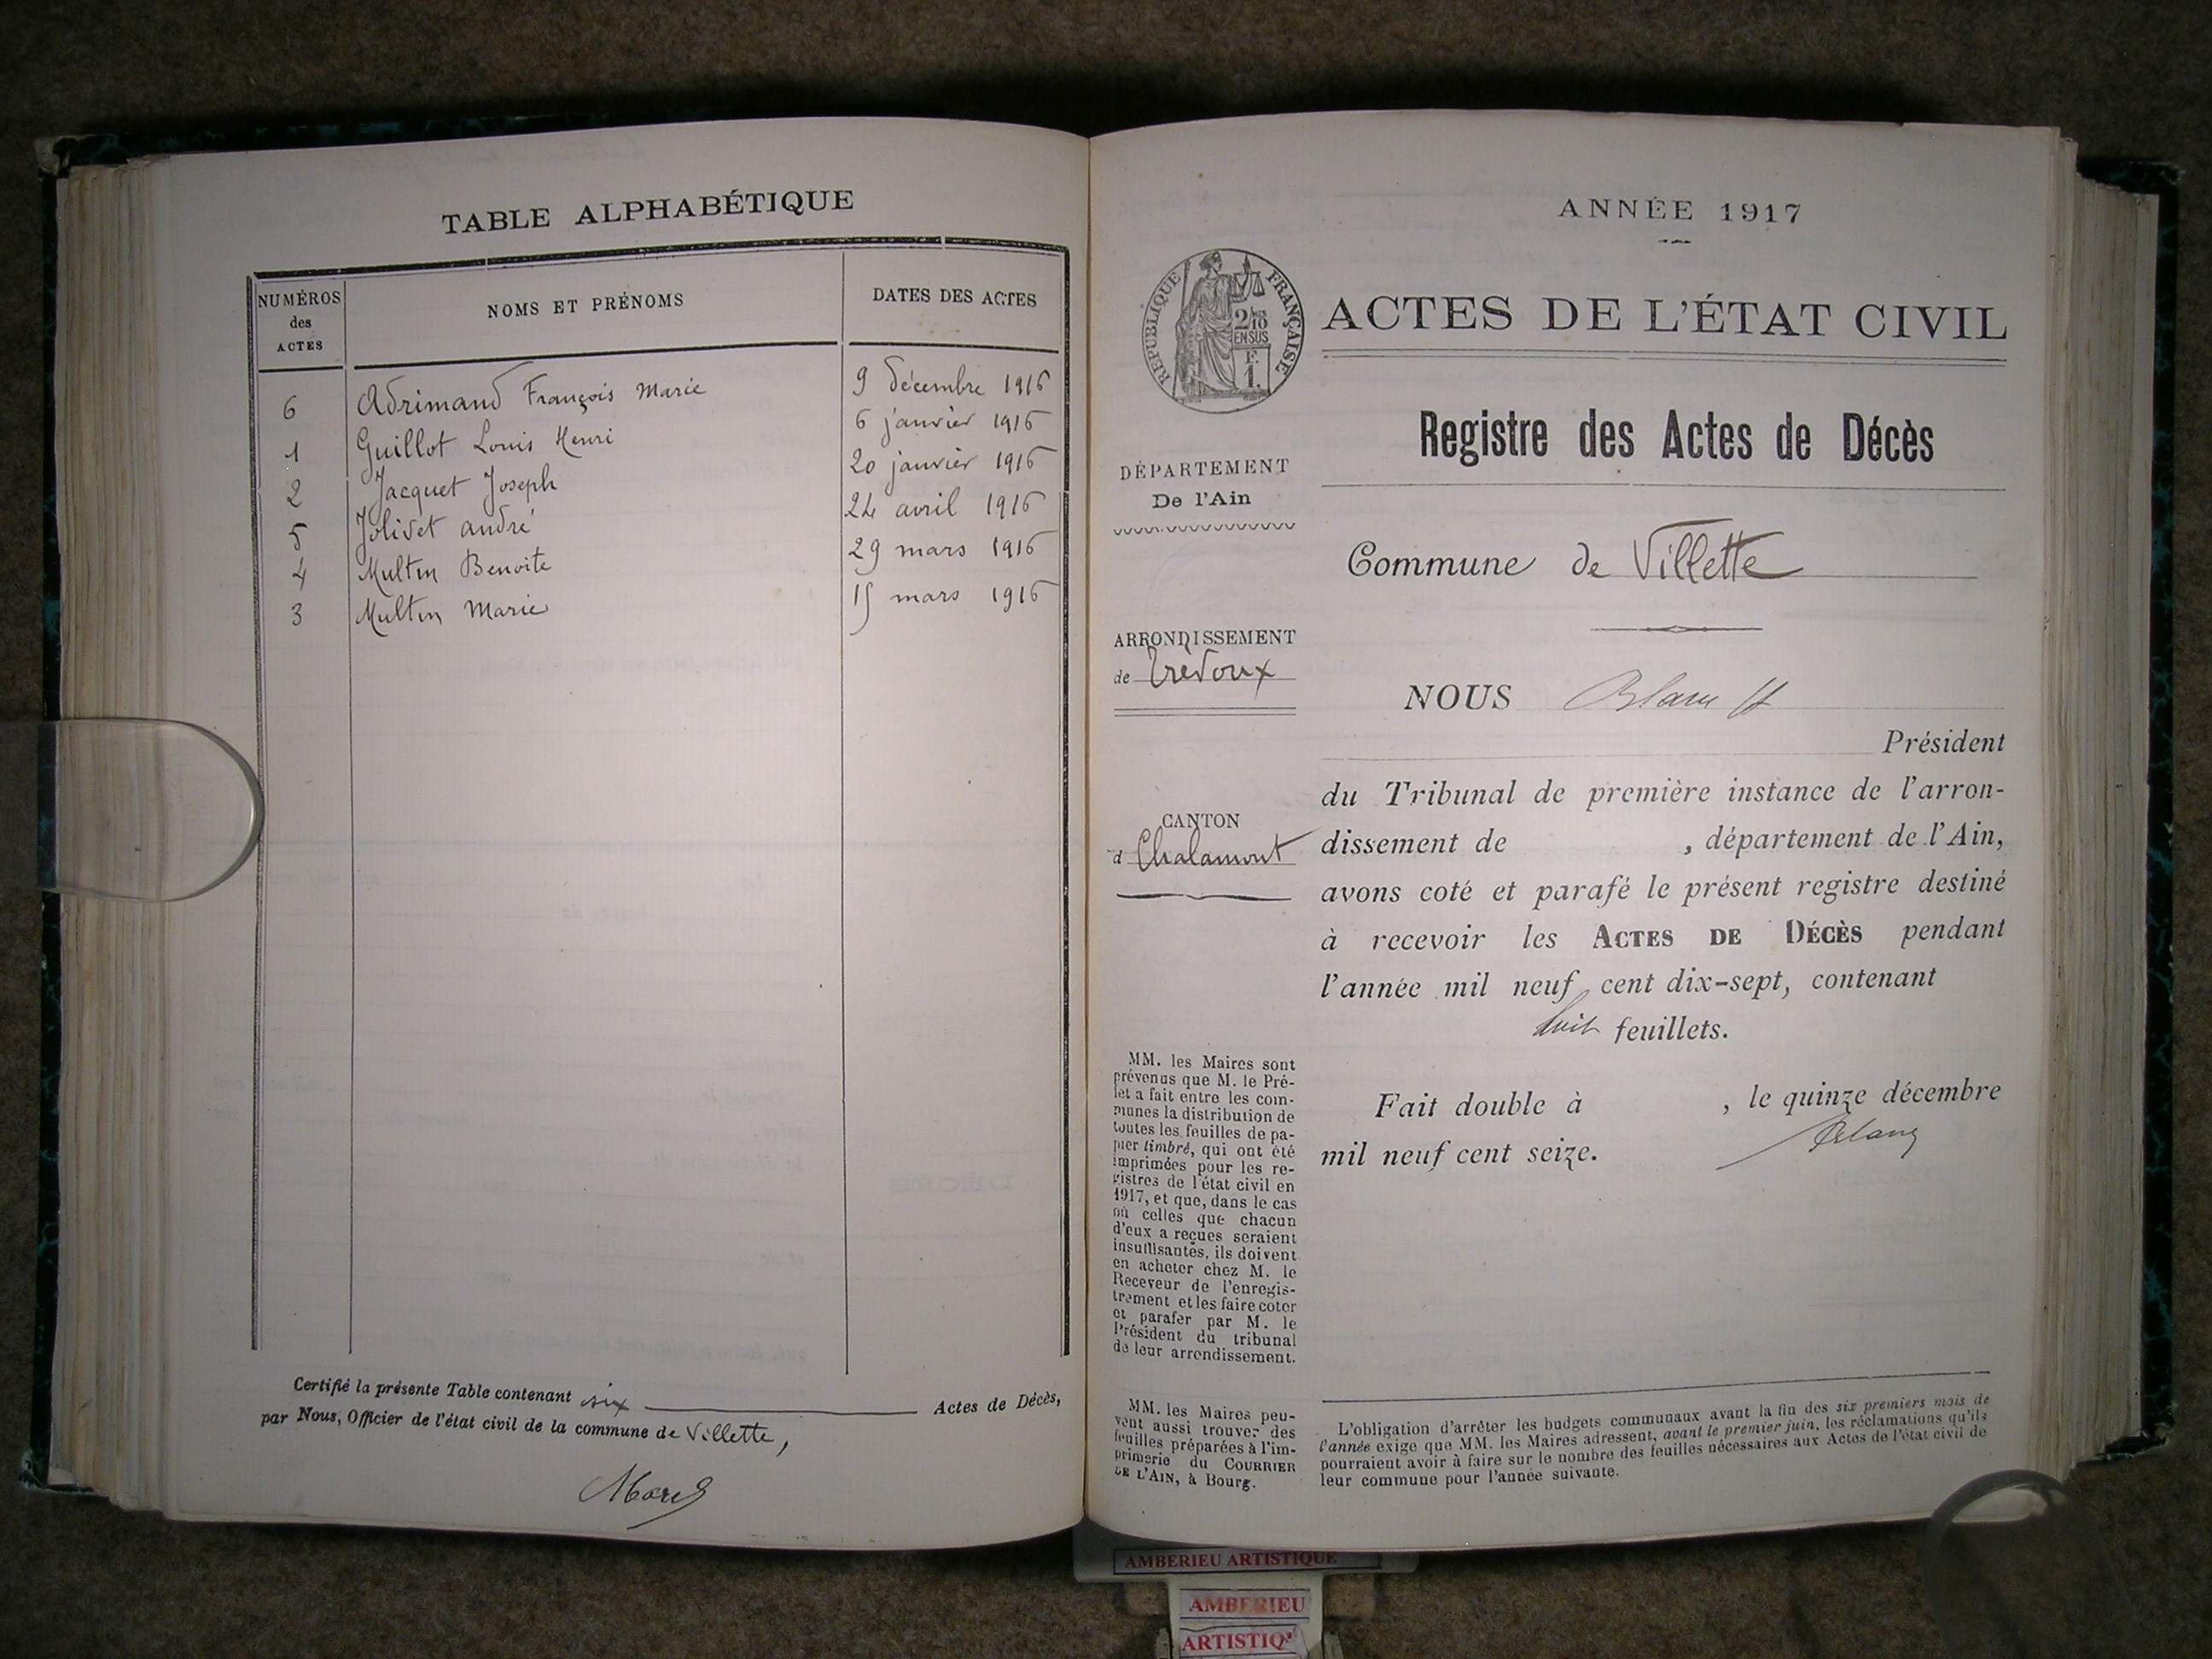 TABLE ALPHABÉTIQUE
NUMÉROS des ACTES
NOMS ET PRÉNOMS
DATES DES ACTES
6 Adrimand François Marie 9 décembre 1916
1 Guillot Louis Henri 6 janvier 1916
2 Jacquet Joseph 20 janvier 1916
5 Jolivet andré 24 avril 1916
4 Multin Benoite 29 mars 1916
3 Multin Marie 15 mars 1916
Certifié la présente Table contenant six Actes de Décès,
par Nous, Officier de l'état civil de la commune de Villette,
ANNÉE 1917
RÉPUBLIQUE FRANÇAISE
2/10
EN SUS
F.
1.
ACTES DE L'ÉTAT CIVIL
Registre des Actes de Décès
DÉPARTEMENT
De l'Ain
Commune de Villette
ARRONDISSEMENT
de Trévoux
NOUS
Président
du Tribunal de première instance de l'arron-
CANTON
d Chalamont
dissement de , département de l'Ain,
avons coté et parafé le présent registre destiné
à recevoir les ACTES DE DÉCÈS pendant
l'année mil neuf cent dix-sept, contenant
huit feuillets.
Fait double à , le quinze décembre
mil neuf cent seize.
MM. les Maires sont
prévenus que M. le Pré-
fet a fait entre les com-
munes la distribution de
toutes les feuilles de pa-
pier timbré, qui ont été
imprimées pour les re-
gistres de l'état civil en
1917, et que, dans le cas
où celles que chacun
d'eux a reçues seraient
insuffisantes, ils doivent
en acheter chez M. le
Receveur de l'enregis-
trement et les faire coter
et parafer par M. le
Président du tribunal
de leur arrondissement.
MM. les Maires peu-
vent aussi trouver des
feuilles préparées à l'im-
primerie du COURRIER
DE L'AIN, à Bourg.
L'obligation d'arrêter les budgets communaux avant la fin des six premiers mois de
l'année exige que MM. les Maires adressent, avant le premier juin, les réclamations qu'ils
pourraient avoir à faire sur le nombre des feuilles nécessaires aux Actes de l'état civil de
leur commune pour l'année suivante.
AMBERIEU ARTISTIQUE
AMBERIEU
ARTISTIQ